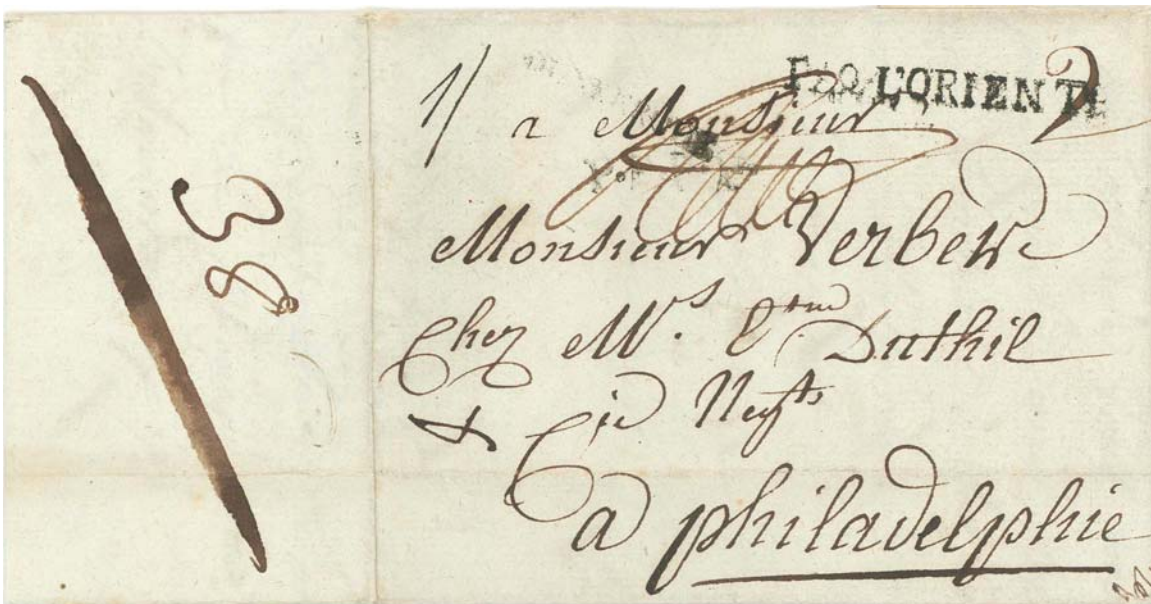 1/
PAQ L'ORIENT
a Monsieur
Monsieur Verbew
Chez Mrs. Etne Duthil
& Cie Negts
a philadelphie
38